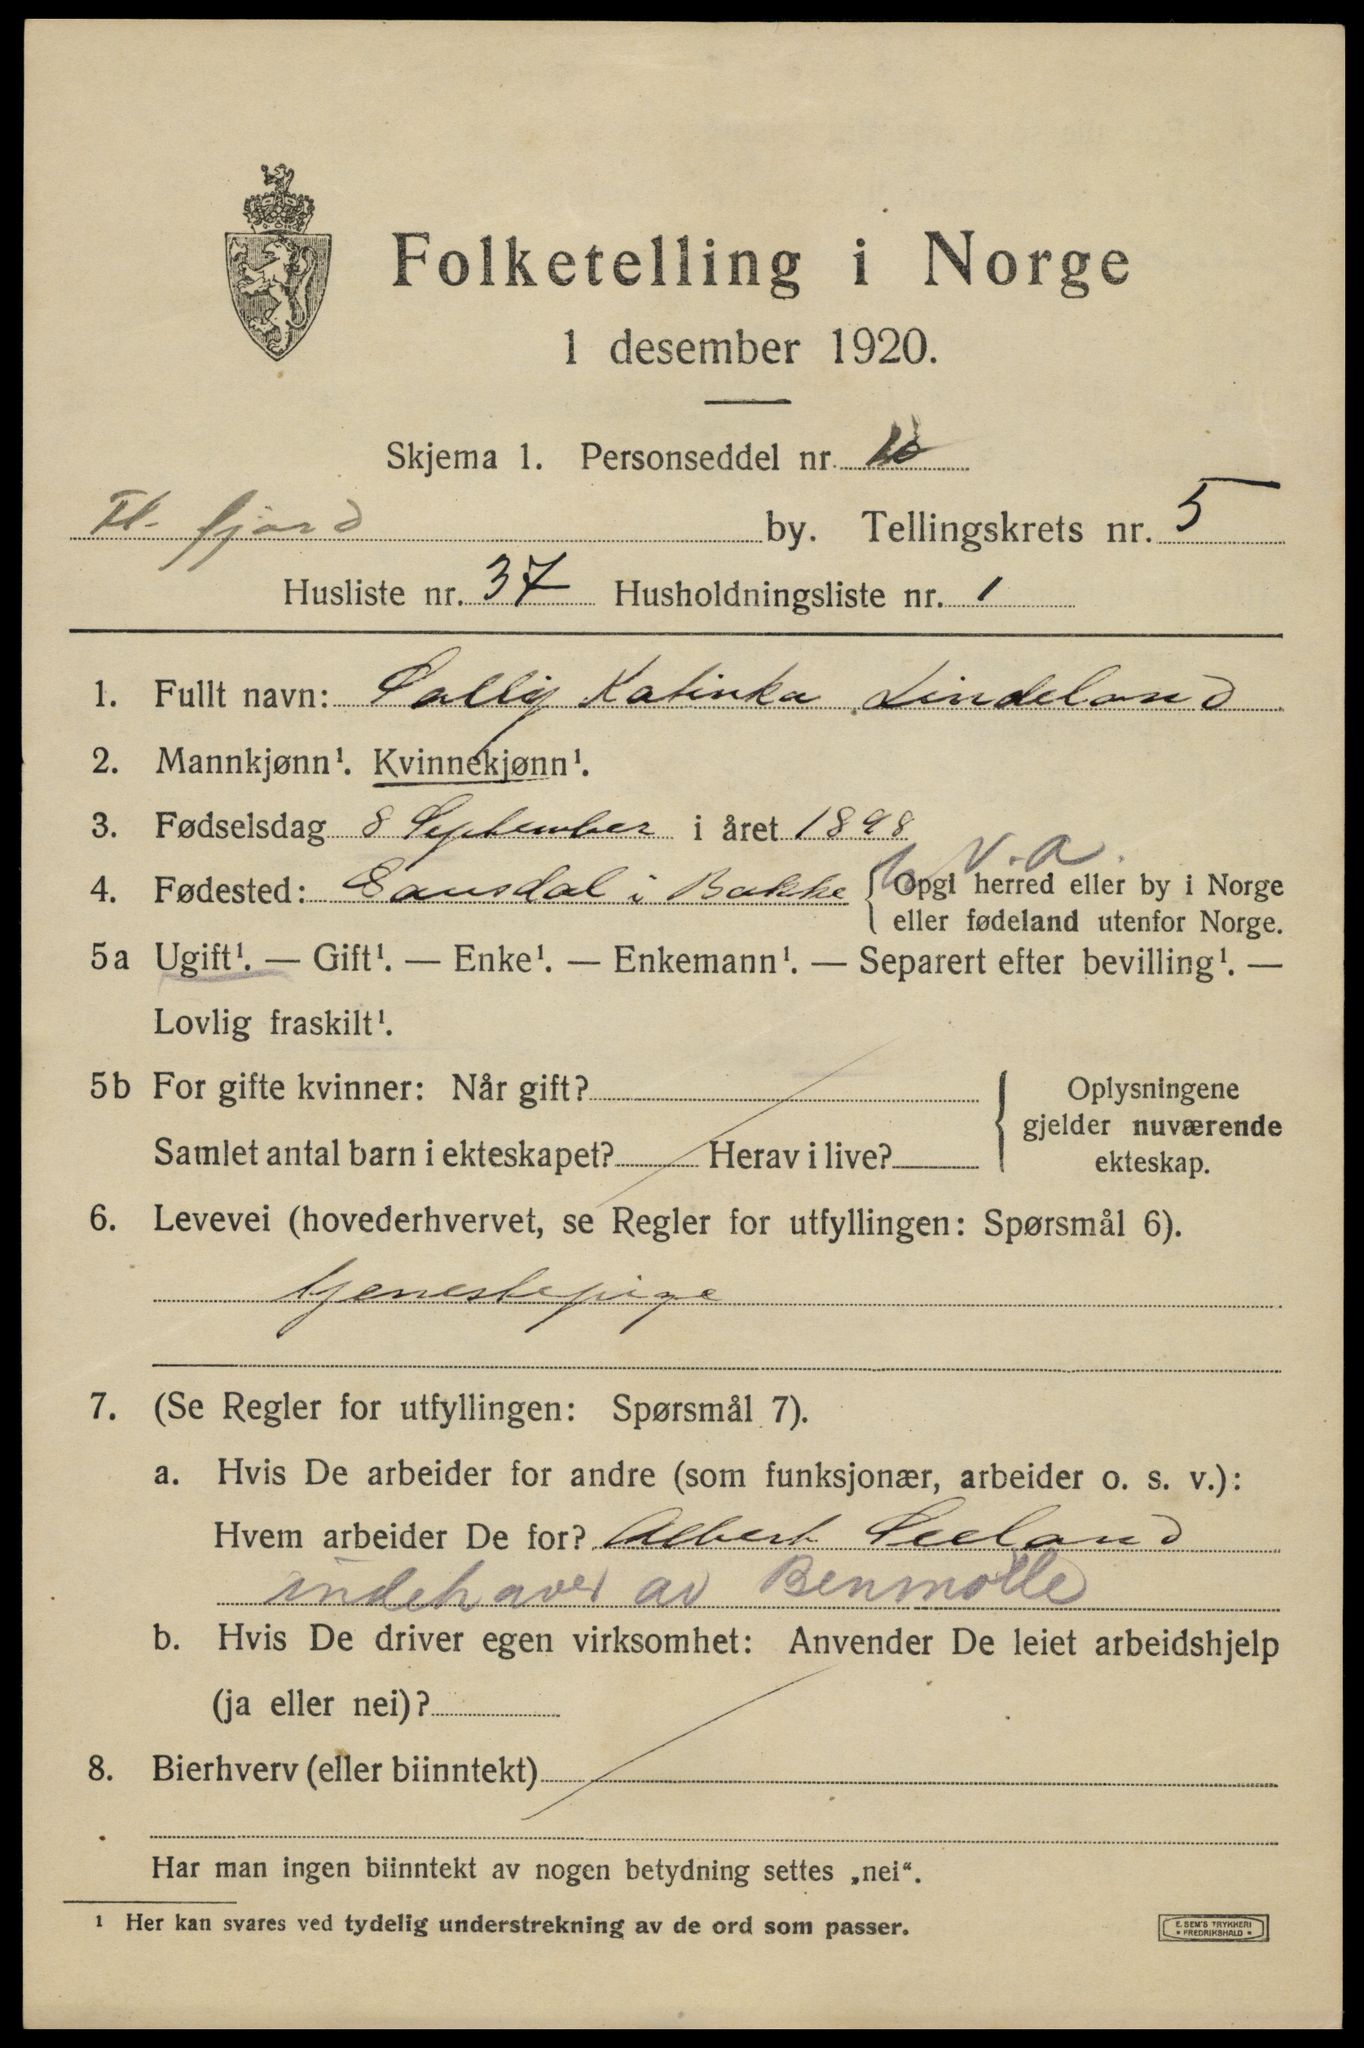 Folketelling i Norge
1 desember 1920.
Skjema 1. Personseddel nr.
Fl. fjord by. Tellingskrets nr. 5
Husliste nr. 37 Husholdningsliste nr. 1
1. Fullt navn: Sally Katinka Lindeland
2. Mannkjønn¹. Kvinnekjønn¹.
3. Fødselsdag 8 September i året 1898
V. a.
4. Fødested: i Bakke { Opgi herred eller by i Norge
eller fødeland utenfor Norge.
5a Ugift¹. — Gift¹. — Enke¹. — Enkemann¹. — Separert efter bevilling¹. —
Lovlig fraskilt¹.
5b For gifte kvinner: Når gift? { Oplysningene
gjelder nuværende
Samlet antal barn i ekteskapet? Herav i live? ekteskap.
6. Levevei (hovederhvervet, se Regler for utfyllingen: Spørsmål 6).
tjenestepige
7. (Se Regler for utfyllingen: Spørsmål 7).
a. Hvis De arbeider for andre (som funksjonær, arbeider o. s. v.):
Hvem arbeider De for? Albert Seeland
indehaver av Benmølle
b. Hvis De driver egen virksomhet: Anvender De leiet arbeidshjelp
(ja eller nei)?
8. Bierhverv (eller biinntekt)
Har man ingen biinntekt av nogen betydning settes „nei“.
¹ Her kan svares ved tydelig understrekning av de ord som passer.
E. SEM'S TRYKKERI
* FREDRIKSHALD *